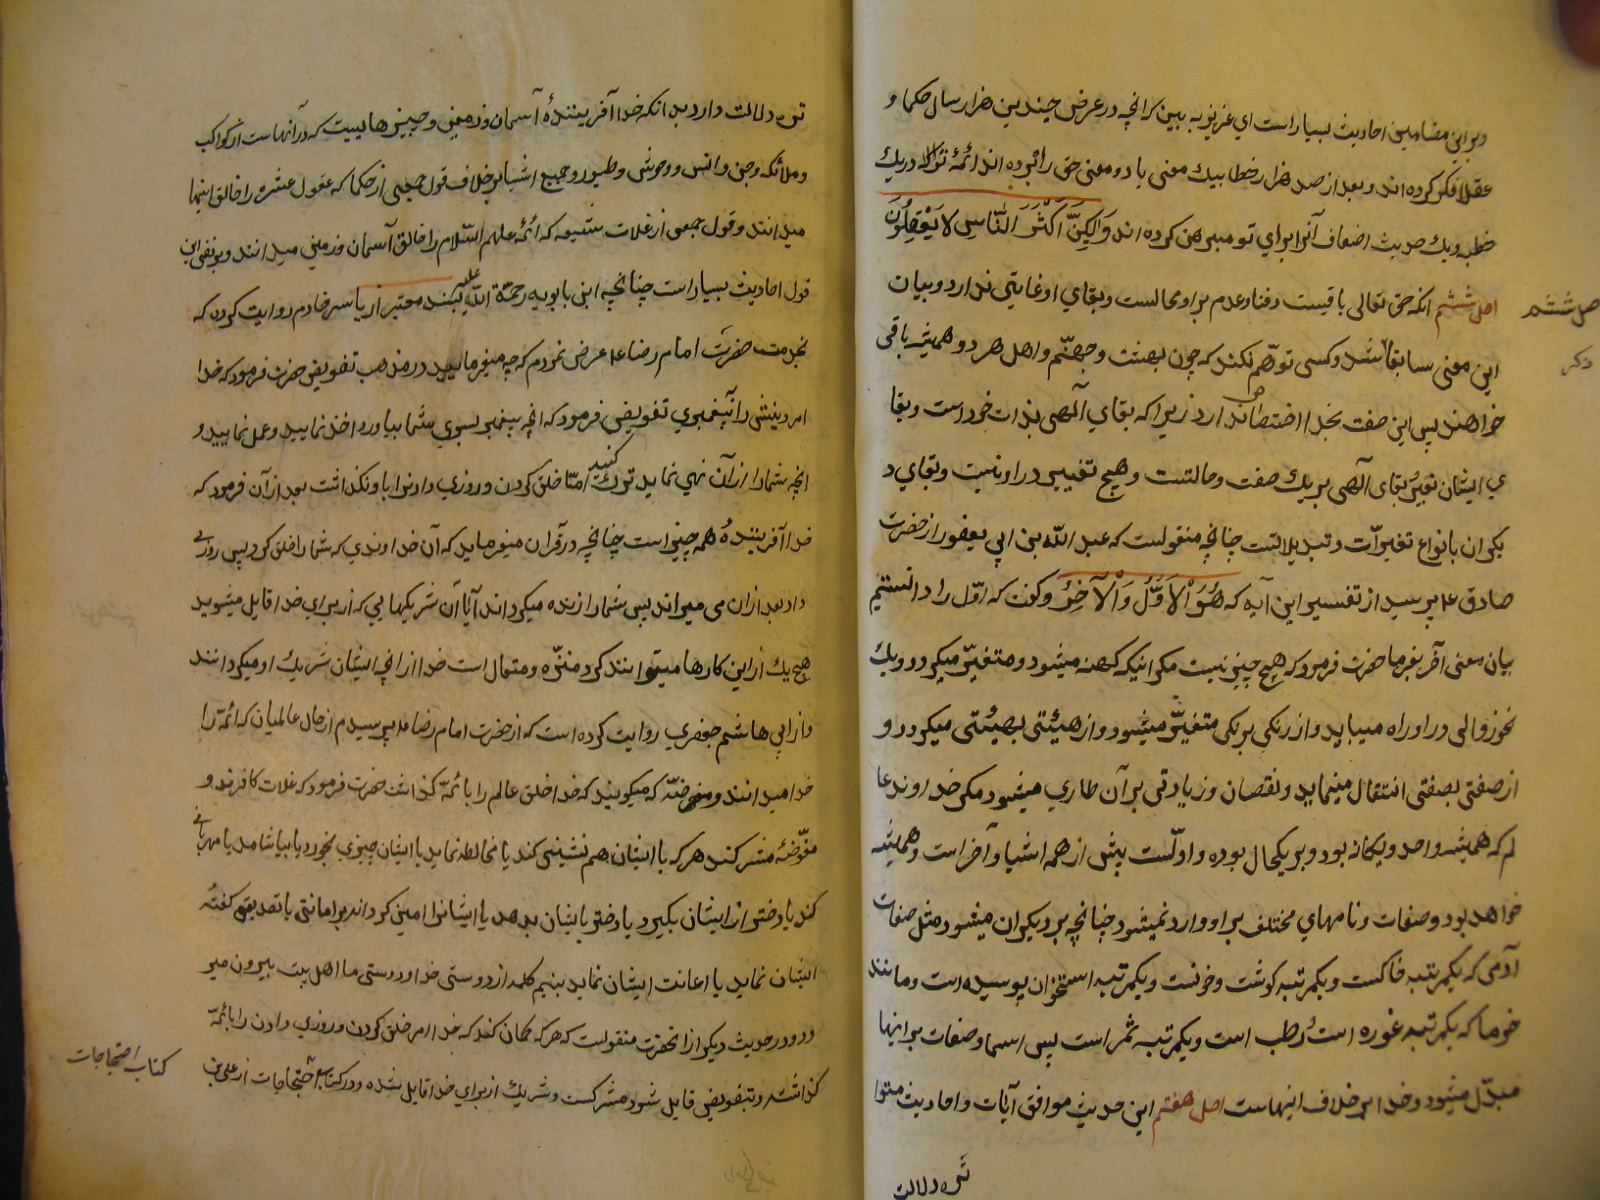 و بر این مضامین احادیث بسیار است ای عزیز به بین که انچه در عرض چندین هزار سال حکما و
عقلا فکر کرده اند و بعد از صد هزار خطا بیك معنی یا دو معنی حق را برده اند ائمهٔ تو در یك
خطبه و یك حدیث اضعاف آنرا برای تو مبرهن کرده اند وَلٰکِنَّ اَکْثَرَ النَّاسِ لا یَعْقِلُونَ
اصل ششم انکه حق تعالی باقیست و فنا و عدم بر او محالست و بقای او غایتی ندارد و بیان
این معنی سابقا شد و کسی توهّم نکند که چون بهشت و جهنّم و اهل هر دو همیشه باقی
خواهند پس این صفت بخدا اختصاص ندارد زیرا که بقای آلهی بذات خود است و بقا
ی ایشان بغیر و بقای آلهی بر یك صفت و حالتست و هیچ تغییر در او نیست و بقای د
یکران بانواع تغیرّات و تبدیلاتست چنانچه منقولست که عبد اللّه بن ابی یعفور از حضرت
صادق ع پرسید از تفسیر این آیه که هُوَ الْاَوَّلُ وَالْآخِرُ و کفت که اوّل را دانستیم
بیان معنی آخر بفرما حضرت فرمود که هیچ چیز نیست مکر انیکه کهنه میشود و متغیّر میکردد و یك
نحو زوالی در او راه مییابد و از رنکی برنکی متغیّر میشود و از هیئتی بهیئتی میکردد و
از صفتی بصفتی انتقال مینماید و نقصان و زیادتی بر آن طاری میشود مکر خداوند عا
لم که همیشه واحد و یکانه بود و بر یکحال بوده و اوّلست پیش از همه اشیا و آخر است و همیشه
خواهد بود و صفات و نامهای مختلف بر او وارد نمیشود چنانچه بر دیکران میشود مثل صفات
آدمی که یکمرتبه خاکست و یکمرتبه کوشت و خونست و یکمرتبه استخوان پوسیده است و مانند
خرما که یکمرتبه غوره است و رطب است و یکمرتبه تمر است پس اسما و صفات بر اینها
مبدّل میشود و خدا بر خلاف اینهاست اصل هفتم این حدیث موافق آیات و احادیث متوا
تره دلالت
صل ششم
ذکر
تره دلالت دارد بد انکه خدا آفرینندهٔ آسمان و زمین و چیزهاییست که در آنهاست از کواکب
و ملائکه و جن و انس و وحوش و طیور و جمیع اشیا بر خلاف قول جمعی از حکما که عقول عشره را خالق اینها
میدانند و قول جمعی از غلات شیعه که ائمّه علیهم السّلام را خالق آسمان و زمین میدانند و بر نفی این
قول احادیث بسیار است چنانچه ابن بابویه رحمة اللّه علیه بسند معتبر از یاسر خادم روایت کرده که
بخدمت حضرت امام رضا ع عرض نمودم که چه میفرمایید در مذهب تفویض حضرت فرمود که خدا
امر دینش را به پیغمبری تفویض فرمود که انچه پیغمبر بسوی شما بیاورد اخذ نمایید و عمل نمایید و
انچه شما را از آن نهی نماید ترك کنید امّا خلق کردن و روزی دادنرا باو نکذاشت بعد از آن فرمود که
خدا آفرینندهٔ همه چیز است چنانچه در قرآن میفرماید که آن خداوندی که شما را خلق کرد پس روزی
داد بعد ازان می میراند پس شما را زنده میکرداند آیا آن شریکهایی که از برای خدا قایل میشوید
هیچ یك از این کارها میتوانند کرد منزّه و متعال است خدا از انچه ایشان شریك او میکردانند
و از ابی هاشم جعفری روایت کرده است که از حضرت امام رضا ع پرسیدم از حال عالمیان که ائمّه را
خدا میدانند و مفوّضه که میکویند که خدا خلق عالم را بائمّه کذاشت حضرت فرمود که غلات کافرند و
مفوّضه مشرکند هر که با ایشان هم نشینی کند یا مخالطه نماید یا ایشان چیزی بخورد یا بیاشامد یا مهربانی
کند یا دختر از ایشان بکیرد یا دختر بایشان بدهد یا ایشانرا امین کرداند بر امانتی یا تصدیق کفتهٔ
ایشان نماید یا اعانت ایشان نماید بنیم کلمه از دوستی خدا و دوستی ما اهل بیت بیرون میر
ود و در حدیث دیکر از انحضرت منقولست که هر که کمان کند که خدا امر خلق کردن و روزی دادن را بائمّه
کذاشته و تفویض قایل شود مشرکست و شریك از برای خدا قایل شده و در کتاب احتجاجات از علی بن
کتاب احتجاجات